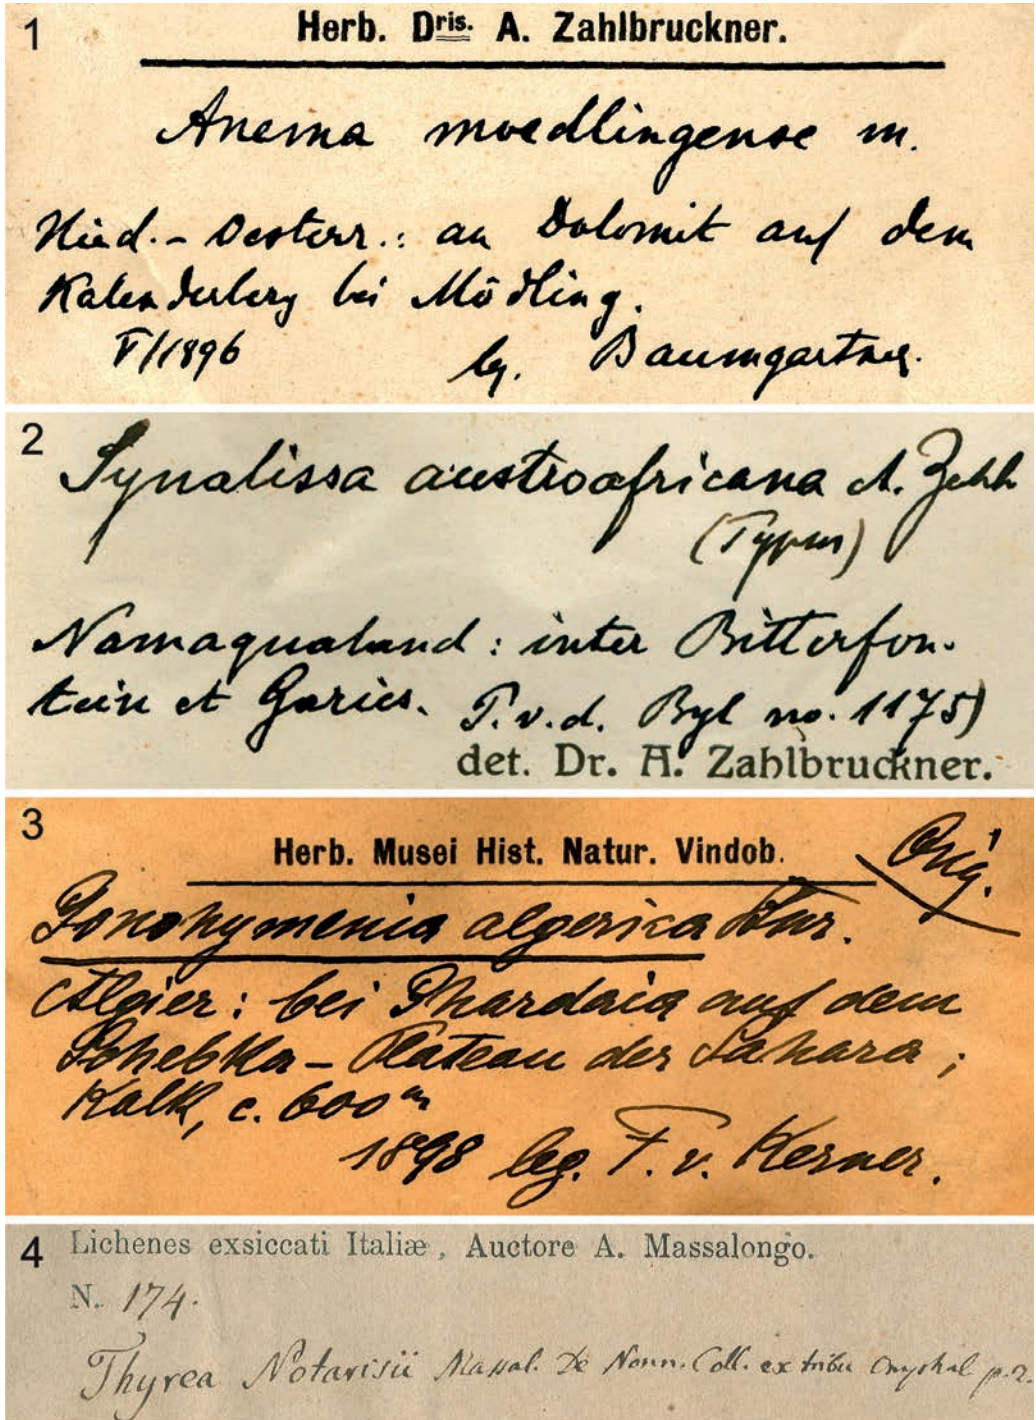 1
Herb. Dris. A. Zahlbruckner.
Anema moedlingense m.
Nied.-Oesterr.: an Dolomit auf dem
Kalenderberg bei Mödling.
V/1896
lg. Baumgartner.
2
Synalissa austroafricana A. Zahlb
(Typus)
Namaqualand: inter Bitterfon-
tein et Garies. P.v.d. Byl no. 1175)
det. Dr. A. Zahlbruckner.
3
Herb. Musei Hist. Natur. Vindob.
Orig.
Gonohymenia algerica Stnr.
Algier: bei Ghardaia auf dem
Schebka-Plateau der Sahara;
Kalk, c. 600m
1898 leg. F. v. Kerner.
4
Lichenes exsiccati Italiæ, Auctore A. Massalongo.
N. 174.
Thyrea Notarisii Massal. De Nonn. Coll. ex tribu p. 2.